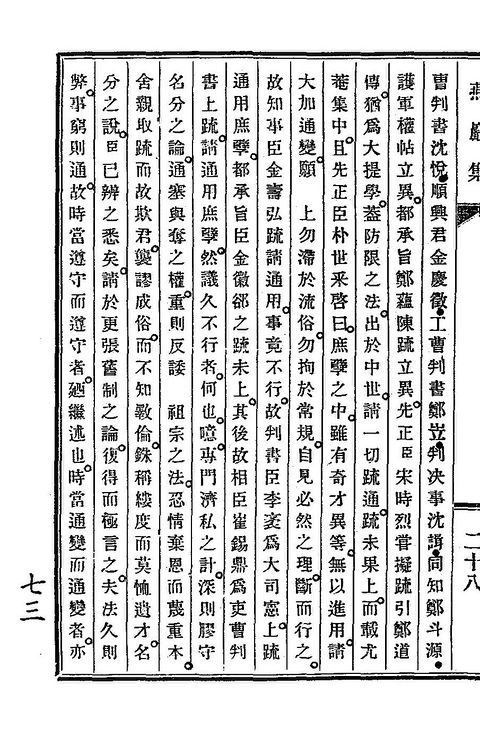 曺判書沈悅順興君金慶徵工曹判書鄭岦判决事沈諿同知鄭斗源
護軍權帖立異都承旨鄭蘊陳疏立異先正臣宋時烈嘗擬疏引鄭道
傳猶爲大提學盖防限之法出於中世請一切疏通疏未果上而載尤
菴集中且先正臣朴世采啓曰庶孽之中雖有奇才異等無以進用請
大加通變願　上勿滯於流俗勿拘於常規自見必然之理斷而行之
故知事臣金壽弘疏請通用事竟不行故判書臣李袤爲大司憲上疏
通用庶孽都承旨臣金徽郤之疏未上其後故相臣崔錫鼎爲吏曹判
書上疏請通用庶孽然議久不行者何也噫專門濟私之計深則膠守
名分之論通塞與奪之權重則反諉　祖宗之法忍情棄恩而蔑重本
舍親取疏而故欺君襲謬成俗而不知斁倫銖稱縷度而莫恤遺才名
分之說臣已辨之悉矣請於更張舊制之論復得而極言之夫法久則
弊事窮則通故時當遵守而遵守者廼繼述也時當通變而通變者亦
燕巖集
二十八
七三